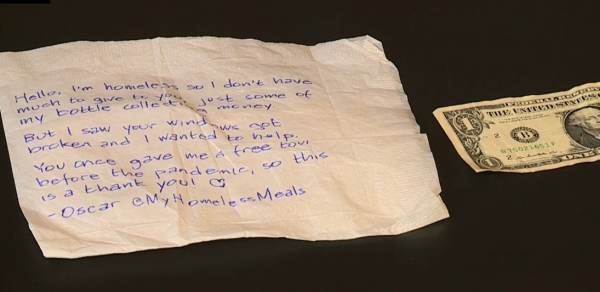 Hello, I'm homeless, so I don't have
much to give to you just some of
my bottle collecting money
But I saw your windows got
broken and I wanted to help.
You once gave me a free bowl
before the pandemic, so this
is a thank you! ♡
-Oscar @MyHomelessMeals
FEDERAL RESERVE
THE UNITED STATES OF
1
2
B
2
ONE